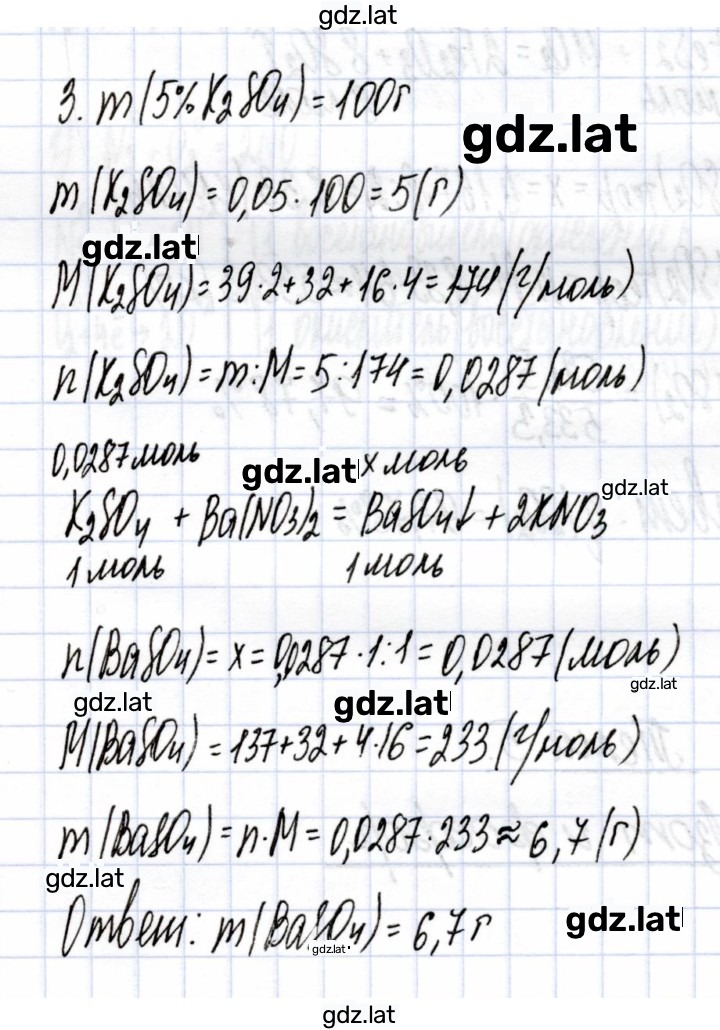 gdz.lat
3. m(5%K₂SO₄) = 100г
gdz.lat
m(K₂SO₄) = 0,05 · 100 = 5(г)
gdz.lat
M(K₂SO₄) = 39·2+32+16·4 = 174(г/моль)
n(K₂SO₄) = m:M = 5:174 = 0,0287(моль)
0,0287моль gdz.lat x моль
gdz.lat
K₂SO₄ + Ba(NO₃)₂ = BaSO₄↓ + 2KNO₃
1 моль 1 моль
n(BaSO₄) = x = 0,0287·1:1 = 0,0287(моль)
gdz.lat
gdz.lat gdz.lat
M(BaSO₄) = 137+32+4·16 = 233(г/моль)
m(BaSO₄) = n·M = 0,0287·233 ≈ 6,7(г)
gdz.lat
Ответ: m(BaSO₄) = 6,7г
gdz.lat
gdz.lat
gdz.lat